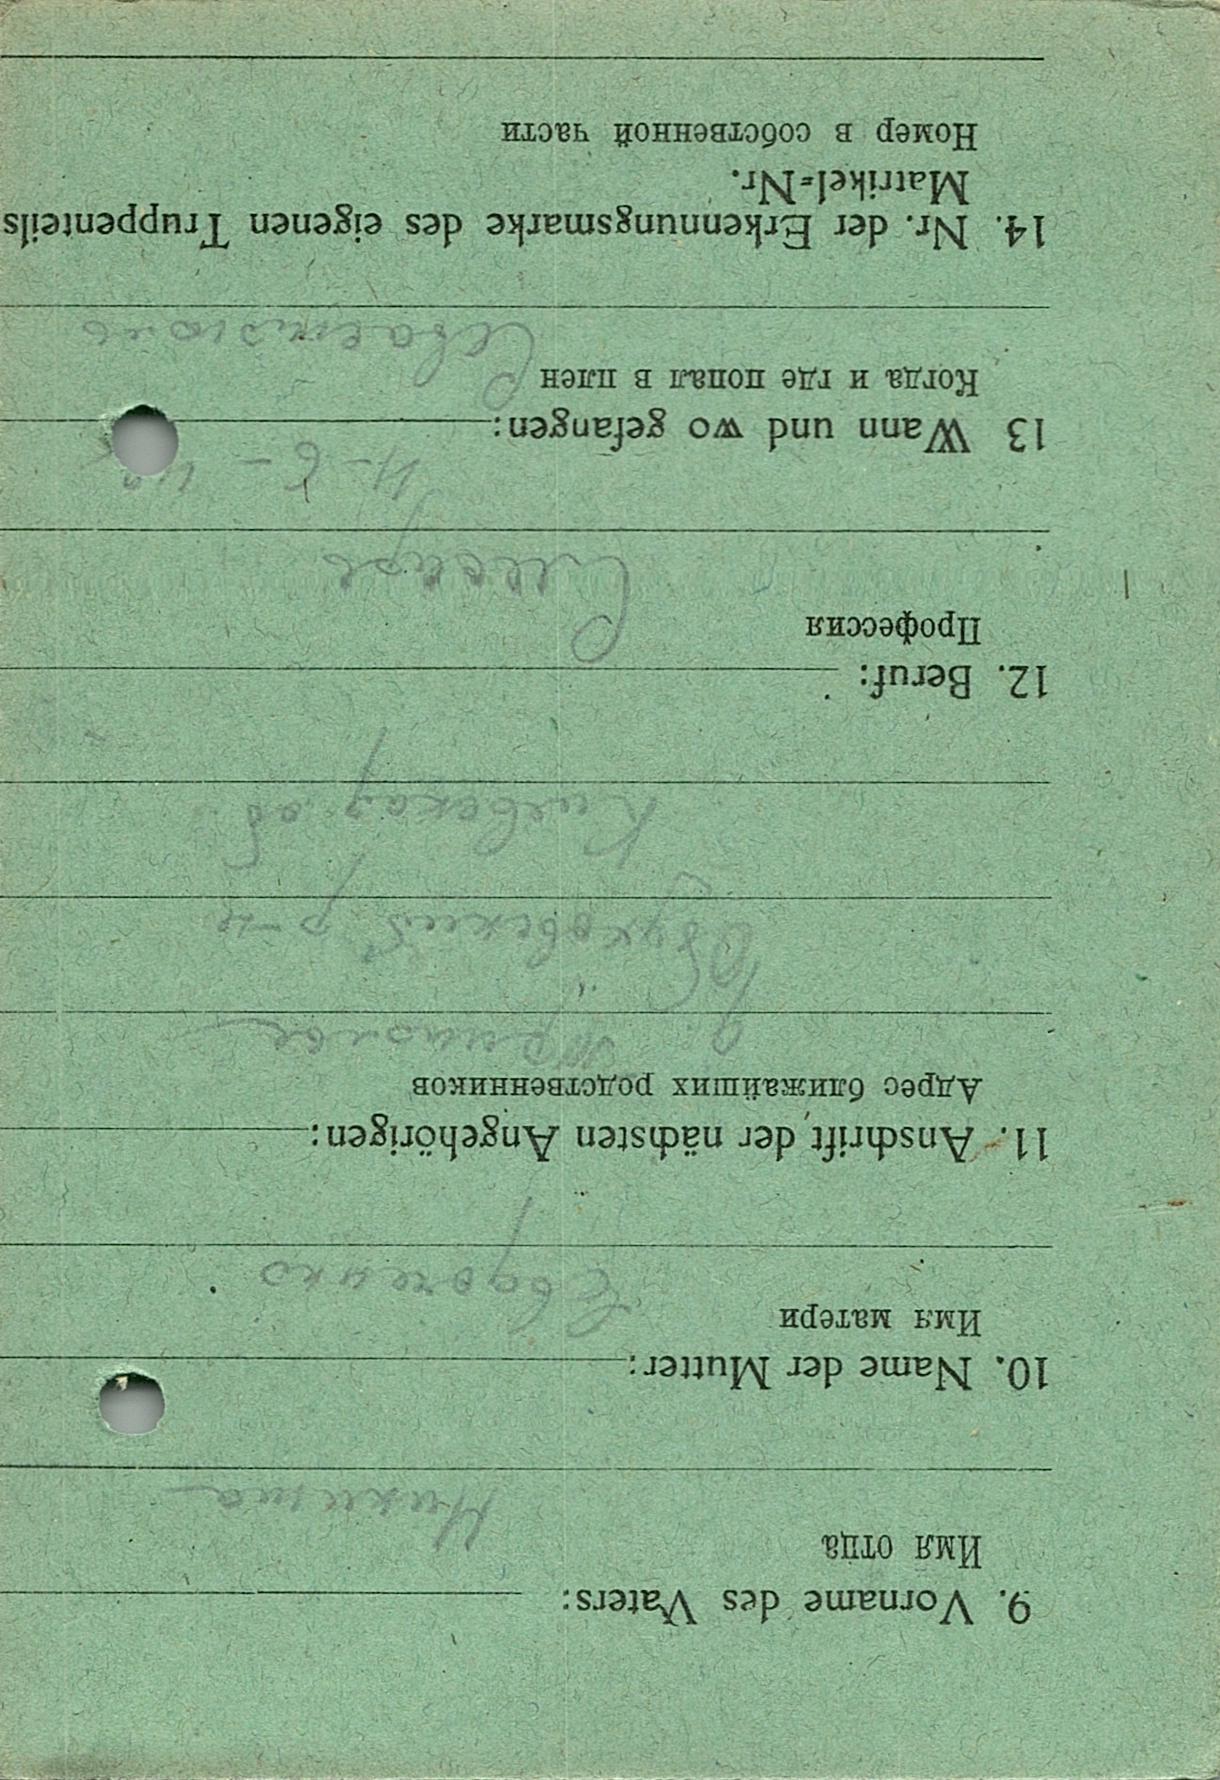 9. Vorname des Vaters:
Имя отца
Никита
10. Name der Mutter:
Имя матери
11. Anschrift der nächsten Angehörigen:
Адрес ближайших родственников
д.
Обуховский р-н
Киевская об
12. Beruf:
Профессия
Слесарь
13 Wann und wo gefangen:
Когда и где попал в плен
Севастополь
14. Nr. der Erkennungsmarke des eigenen Truppenteils
Matrikel=Nr.
Номер в собственной части